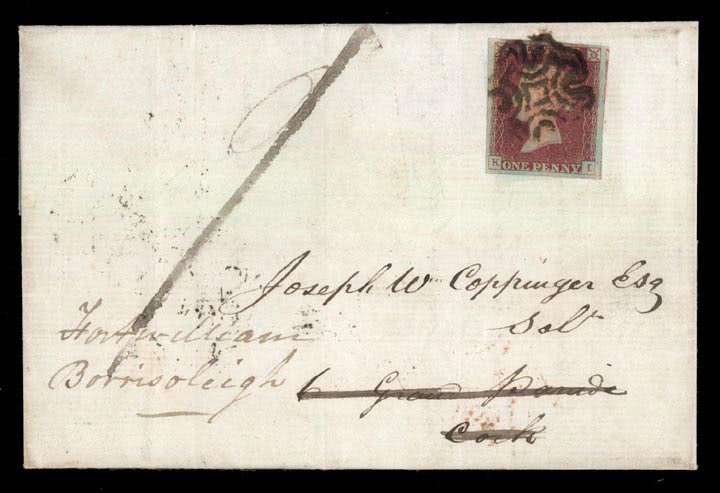 K I
ONE PENNY
Joseph W Coppinger Esq
Solr
Fortwilliam
Borrisoleigh
6 Grand Parade
Cork